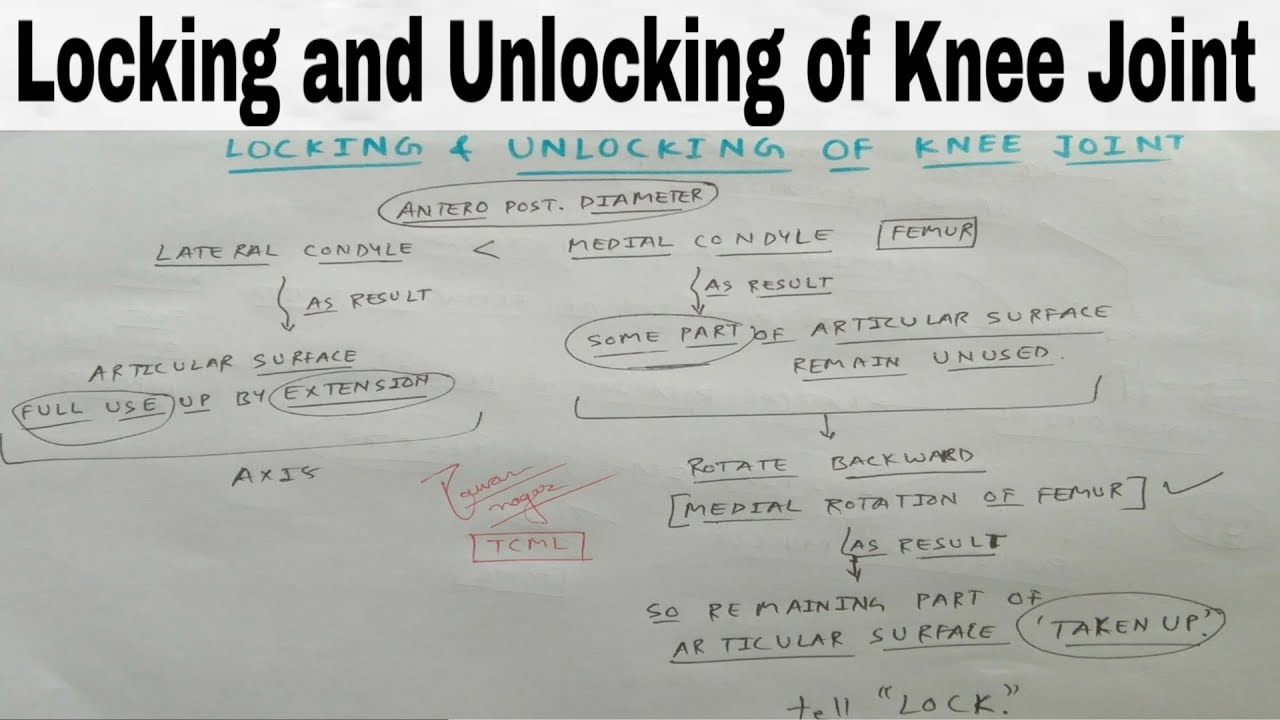 Locking and Unlocking of Knee Joint
LOCKING & UNLOCKING OF KNEE JOINT
ANTERO POST. DIAMETER
LATERAL CONDYLE < MEDIAL CONDYLE FEMUR
AS RESULT
AS RESULT
ARTICULAR SURFACE
FULL USE UP BY EXTENSION
AXIS
SOME PART OF ARTICULAR SURFACE
REMAIN UNUSED.
ROTATE BACKWARD
[MEDIAL ROTATION OF FEMUR] ✓
AS RESULT
SO REMAINING PART OF
ARTICULAR SURFACE 'TAKEN UP.'
tell "LOCK."
nagar
TCML